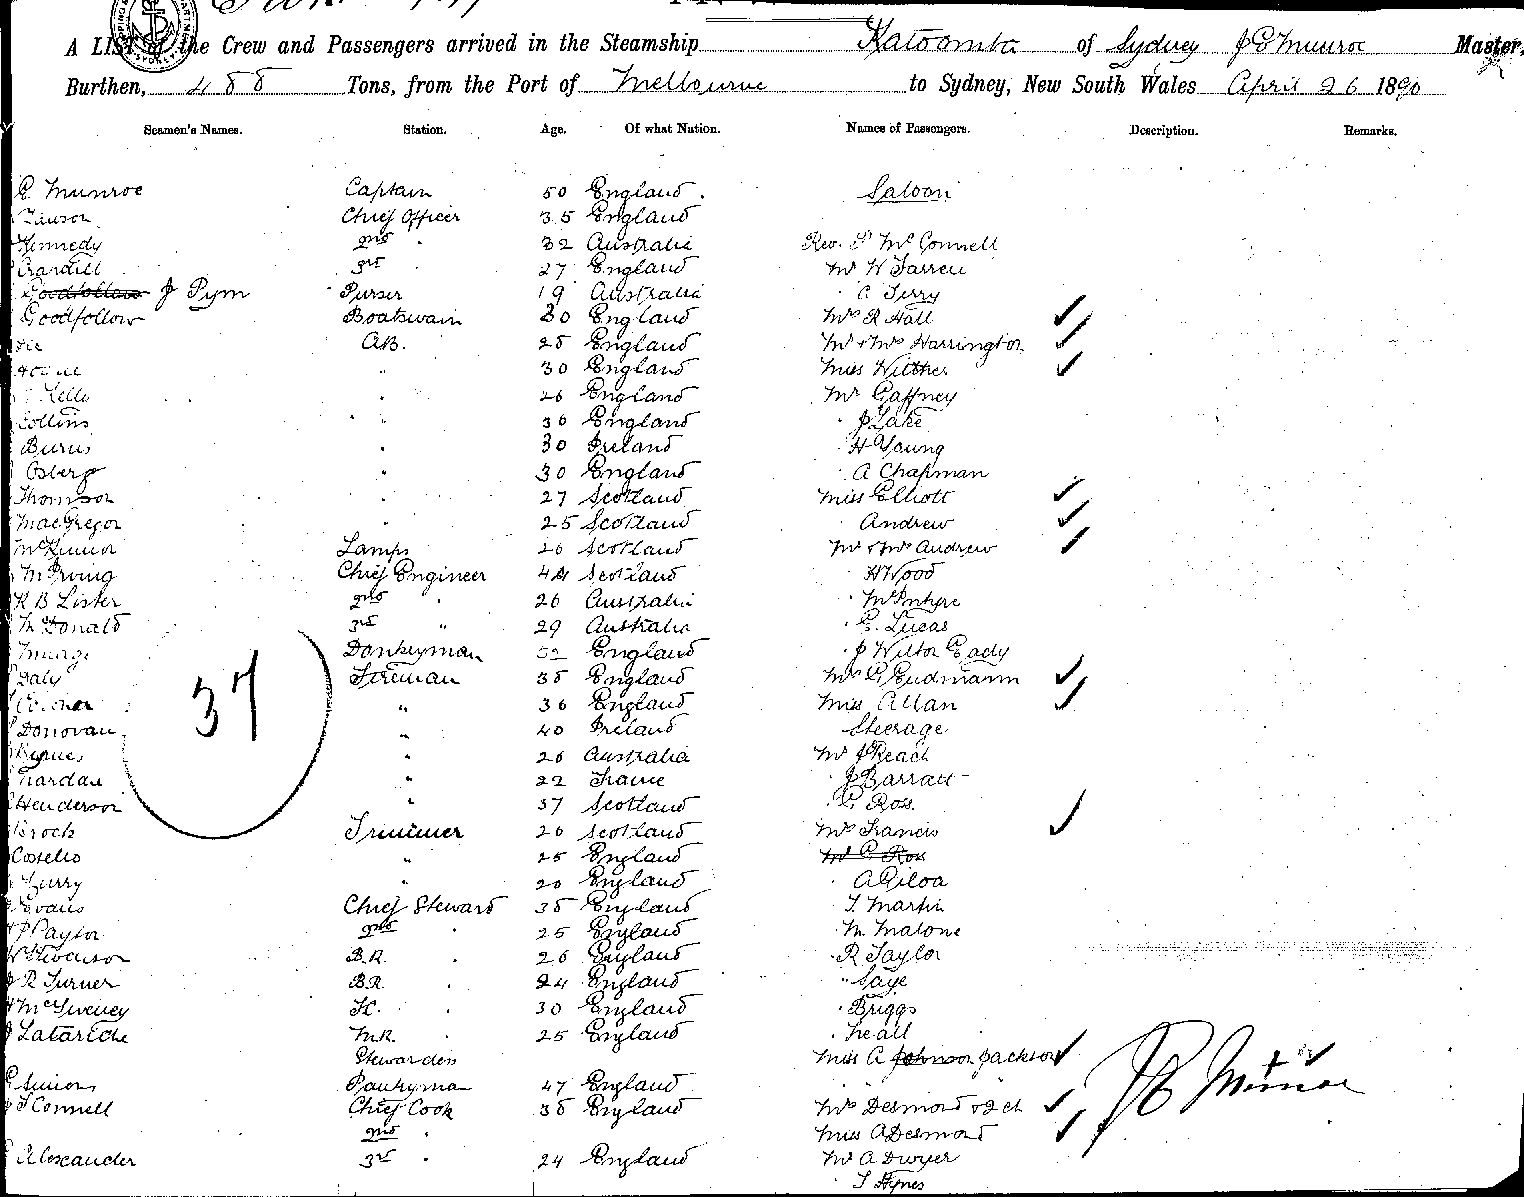 A LIST of the Crew and Passengers arrived in the Steamship Katoomba of Sydney J C Munroe Master,
Burthen, 488 Tons, from the Port of Melbourne to Sydney, New South Wales April 26 1890
Seamen's Names. Station. Age. Of what Nation. Names of Passengers. Description. Remarks.
C Munroe Captain 50 England. Saloon
Chief Officer 35 England
Kennedy 2nd " 32 Australia Rev. McConnell
3rd 27 England Mr W Farren
Goodfollow J Pym Purser 19 Australia " Terry
Goodfollow Boatswain 30 England Mrs R Hall
A.B. 28 England Mr & Mrs Harrington
" 30 England Miss Wilther
Kelly " 26 England Mr Gaffney
Collins " 36 England " J Lake
Burns " 30 Ireland " H Young
Osberg " 30 England " A Chapman
Thomson " 27 Scotland Miss Elliott
MacGregor " 25 Scotland Andrew
McKinnon Lamps 26 Scotland Mr & Mrs Andrew
M Irving Chief Engineer 44 Scotland " H Wood
R B Lister 2nd " 26 Australia " McIntyre
McDonald 3rd " 29 Australia " G. Lucas
Donkeyman 52 England " J Wilton Eady
Daly Fireman 38 England Mrs G Eudmann
37
" 36 England Miss Allan
Donovan " 40 Ireland Steerage
Byrnes " 26 Australia Mr J Reach
" 22 France " J Barratt
Henderson " 37 Scotland " C Ross
Brock Trimmer 26 Scotland Mrs Francis
Costello " 25 England Mr C Ross
Curry " 20 England " A Giloa
Evans Chief Steward 38 England " T Martin
Paytor 2nd " 25 England " M Malone
W Stevenson B.R. " 26 England " R Taylor
J R Turner B.R. " 24 England " Saye
H McSweney " 30 England " Briggs
J Latareche M.R. " 25 England " Neall
Stewardess Miss A Johnson Jackson
Pantryman 47 England
J Connell Chief Cook 38 England Mrs Desmond & 2 ch
2nd " Miss A Desmond
Alexander 3rd " 24 England Mr A Dwyer
" T Hynes
J C Munroe